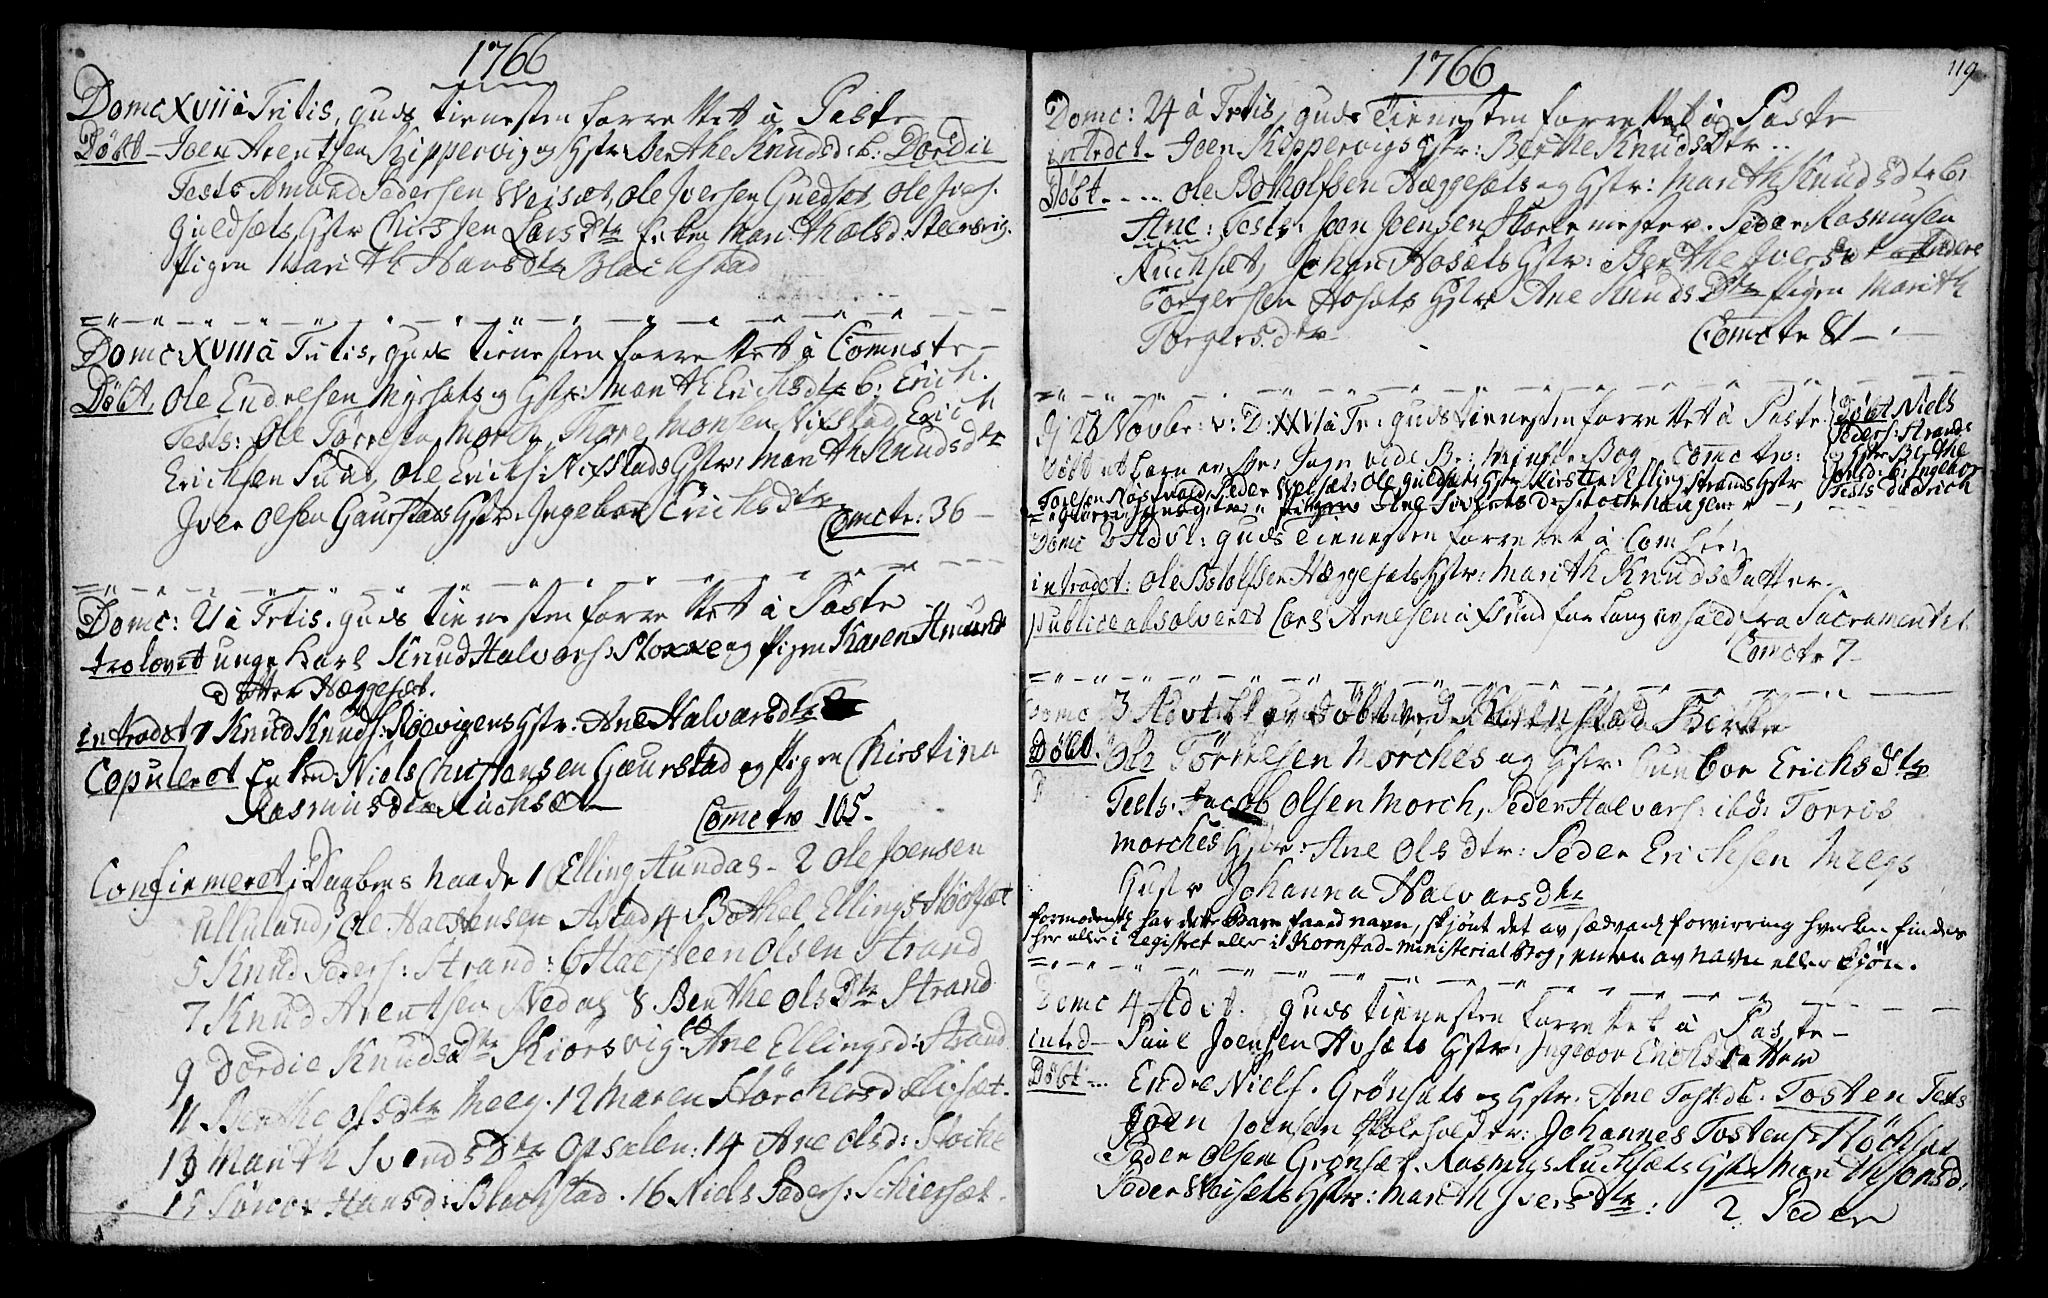 1766
Domc XVII à Tritis, guds tienesten forrettet à Paste
Døbt Joen Arentsen Kippervig og Hstr: Berthe Knudsd: b: Dordie
Tests Amond Pedersen Weisæt, Ole Jversen Guldset, Ole Jvers:
Guldsæts Hstr Chirsten Lars Dtr Enken Mari Thoelsd: Steensvig.
Pigen Marith Hansdtr Blachstad
Domc: XVIII à Tritis, guds tienesten forrettet à Comnste
Døbt, Ole Endresen Myrsæts og Hstr: Marith Erichsdtr b: Erich.
Tests: Ole Tørresen Morch, Thore Monsen Nixstad, Erich
Erichsen Sund, Ole Erichs: Nixstads Hstr: Marith Knudsdtr
Jver Olsen Gaustads Hstr: Ingebor Erichsdtr
Comcte: 36
Domc: 21 à Trtis. guds tienesten forrettet à Paste
trolovet unge Karl Knud Halvors: Stoxxe og Pigen Karen Amunds
dotter Hæggesæt.
introdct 1 Knud Knuds: Røevigens Hstr: Ane Halvarsdtr
Copuleret Enken Niels Christensen Gaustad og Pigen Chirstina
Rasmusdtr Ruchsæt
Comcte 105.
Confirmeret i Daabens naade 1 Elling Hundas - 2 Ole Joensen
Ulluland, 3 Ole Halstensen Alstad 4 Bothel Ellings Størchsæt
5 Knud Peders: Strand: 6 Halsteen Olsen Strand
7 Knud Arentsen Nedas 8 Berthe Ols Dtr Strand
9 Dordie Knudsdtr Kiorsvig. 10 Ane Ellingsd: Strand
11 Berthe Olsdtr Meeg. 12 Maren Størchersd Eligsæt.
13 Marith Svends Dtr Opsalen: 14 Ane Olsd: Stoche
15 Siwor Hansd: Blachstad. 16 Niels Peders: Schiersæt.
1766
119
Domc: 24 à Trtis, guds Tienesten forrettet à Paste
introdct. Joen Kippervigs Hstr: Berthe Knuds Dtr..
Døbt..... Ole Botholfsen Hæggesæts og Hstr: Marith Knudsdtr b:
Ane: Tests: Joen Joensen Skolemester. Peder Rasmusen
Ruchsæt, Johan Hosæts Hstr: Berthe Jversdt Anders
Torgersen Hosæts Hstr Ane Knuds Dtr Pigen Marith
Torgersdtr
Comcte 81
26 Novbr: v: D: XXVI à Tr: guds tienesten forrettet à Paste
Døbt et barn Tagn vide Br: Minister Bog. Comcte:
Døbt Niels
Peders: Strands
og Hstr Berthe
Jonsd: b: Ingebor
Tests Didrich
Torlsen Røsvold, Peder Weiset, Ole Guldsets Hstr Kirsten: Elling Strands Hstr
Pigen Ane Sivertsd: Stochhougen
Domc 2 Advt: guds Tienesten forrettet à Comster
introdct: Ole Botolfsen Hæggesæts Hstr: Marith Knuds Datter.
publice absolveret Lars Arnesen i Sund for lang afhold fra Sacramentet
Comcte 7
Domc 3 Advt blev døbt ved Kornstad Kircke
Døbt. Ole Tørresen Morches og Hstr: Gunbor Erichsdtr
Tests: Jacob Olsen Morch, Peder Halvars: ibd: Torris
Morches Hstr: Ane Olsdtr: Peder Erichsen Meegs
Hustr Johanna Halvarsdtr
formodentl: har dette Barn faaed navn, skjønt det av sædvanl forvirring hverken findes
her eller i Registret eller i Kornstad-ministerial Bog, enten av navn eller Kjøn.
Domc 4 Advt. guds tienesten forrettet à Paste
introd Paul Joensen Hosæts Hstr: Ingebor Erichs Datter
Døbt... Endre Niels. Grønsæts og Hstr. Ane Tostd. b. Tosten Tests
Joen Joensen Skoleholder: Johannes Tostens: Støchset
Peder Olsen Grønsæt. Rasmus Ruchsæts Hstr Marithe Jonsd:
Peder Weisets Hstr: Marith Jvers Dtr: 2 Peder